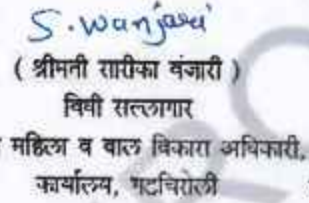 S. Wanjari
( श्रीमती सारीका वंजारी )
विधी सल्लागार
महिला व बाल विकास अधिकारी,
कार्यालय, गडचिरोली